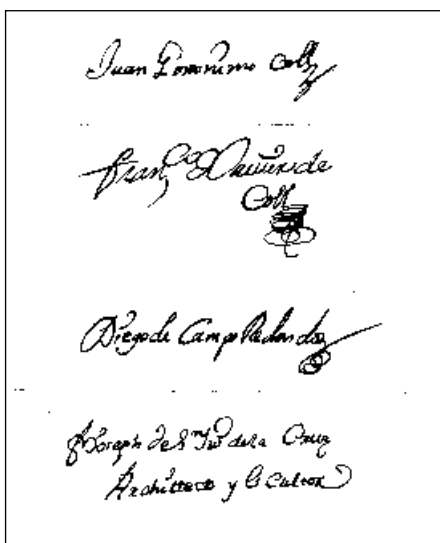 Juan Geronimo Coll
Fran,co Xavier de
Coll
Diego de Campo Redondo
Fr Joseph de S Ju° de la Cruz
Architecto y Escultor